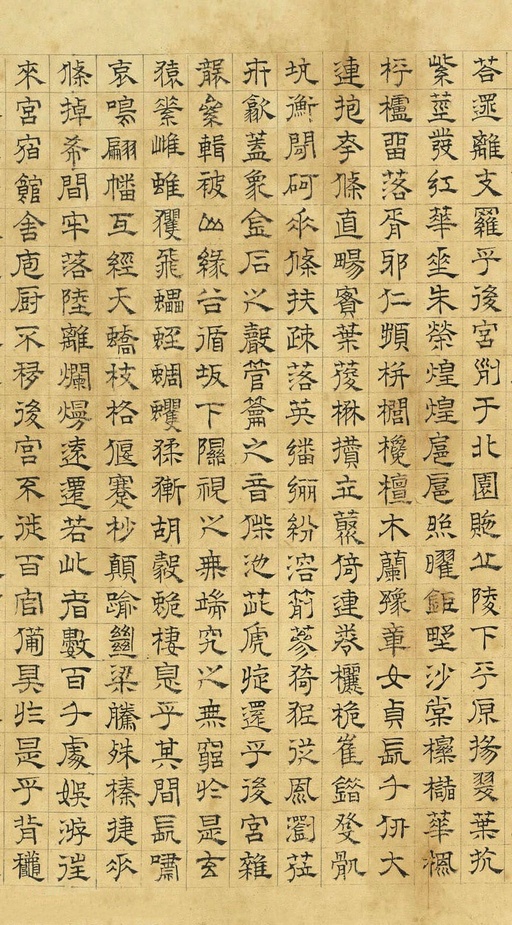 荅遝離支羅乎後宮列于北園貤丘陵下平原揚翠葉扤
紫莖發紅華垂朱榮煌煌扈扈照曜鉅野沙棠櫟櫧華楓
枰櫨留落胥邪仁頻栟櫚欃檀木蘭豫章女貞長千仞大
連抱夸條直暢實葉葰楙攢立叢倚連卷欐佹崔錯癹骫
坑衡閜砢垂條扶疎落英繙纚紛溶箾蔘猗狔從風藰莅
卉歙蓋象金石之聲管籥之音偨池茈虒旋還乎後宮雜
襲絫輯被山緣谷循坂下隰視之無端究之無窮於是玄
猿素雌蜼玃飛蠝蛭蜩蠼猱獑胡豰蛫棲息乎其間長嘯
哀鳴翩幡互經夭蟜枝格偃蹇杪顛踰絕梁騰殊榛捷垂
條掉希間牢落陸離爛熳遠遷若此者數百千處娛游往
來宮宿館舍庖厨不移後宮不徙百官備具於是乎背穐